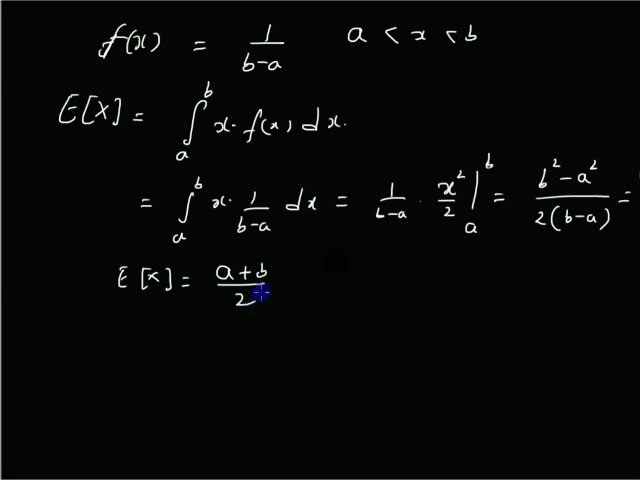 f(x) = 1/(b-a)   a < x < b
E[X] = ∫_a^b x · f(x) dx.
= ∫_a^b x · 1/(b-a) dx = 1/(b-a) · x²/2 |_a^b = b²-a² / 2(b-a) =
E[x] = a+b / 2